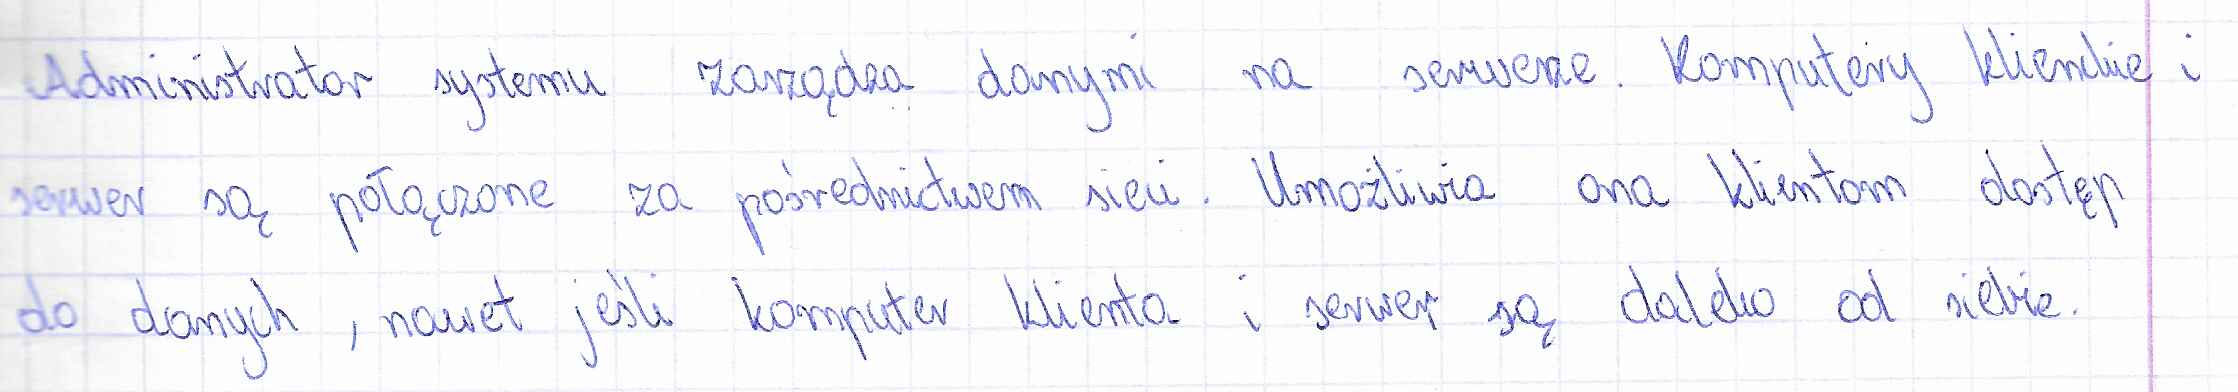 Administrator systemu zarządza danymi na serwerze. Komputery klienckie i
serwer są połączone za pośrednictwem sieci. Umożliwia ona klientom dostęp
do danych, nawet jeśli komputer klienta i serwer są daleko od siebie.